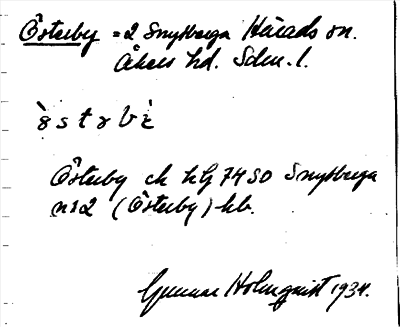 Österby = 2 Snytberga Härads sn.
Åkers hd. Sdm. l.
Österby ek kG 7450 Snytberga
n:s 2 (Österby) hb.
Gunnar Holmquist 1934.